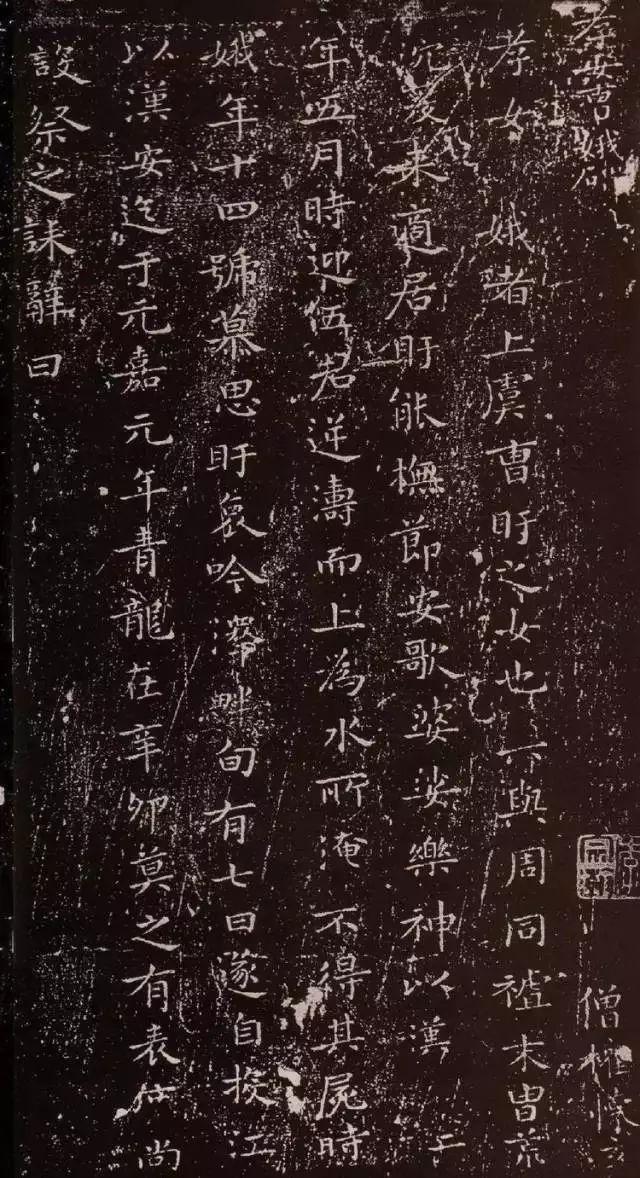 孝女曹娥碑
孝女 娥者上虞曹盱之女也其 與周同祖末胄荒
沉爰来適居盱能撫節安歌婆娑樂神以漢 二
年五月時迎伍君逆濤而上為水所淹不得其屍時
娥年十四號慕思盱哀吟澤畔旬有七日遂自投江
以漢安迄于元嘉元年青龍在辛卯莫之有表 尚
設祭之誄辭曰
僧權